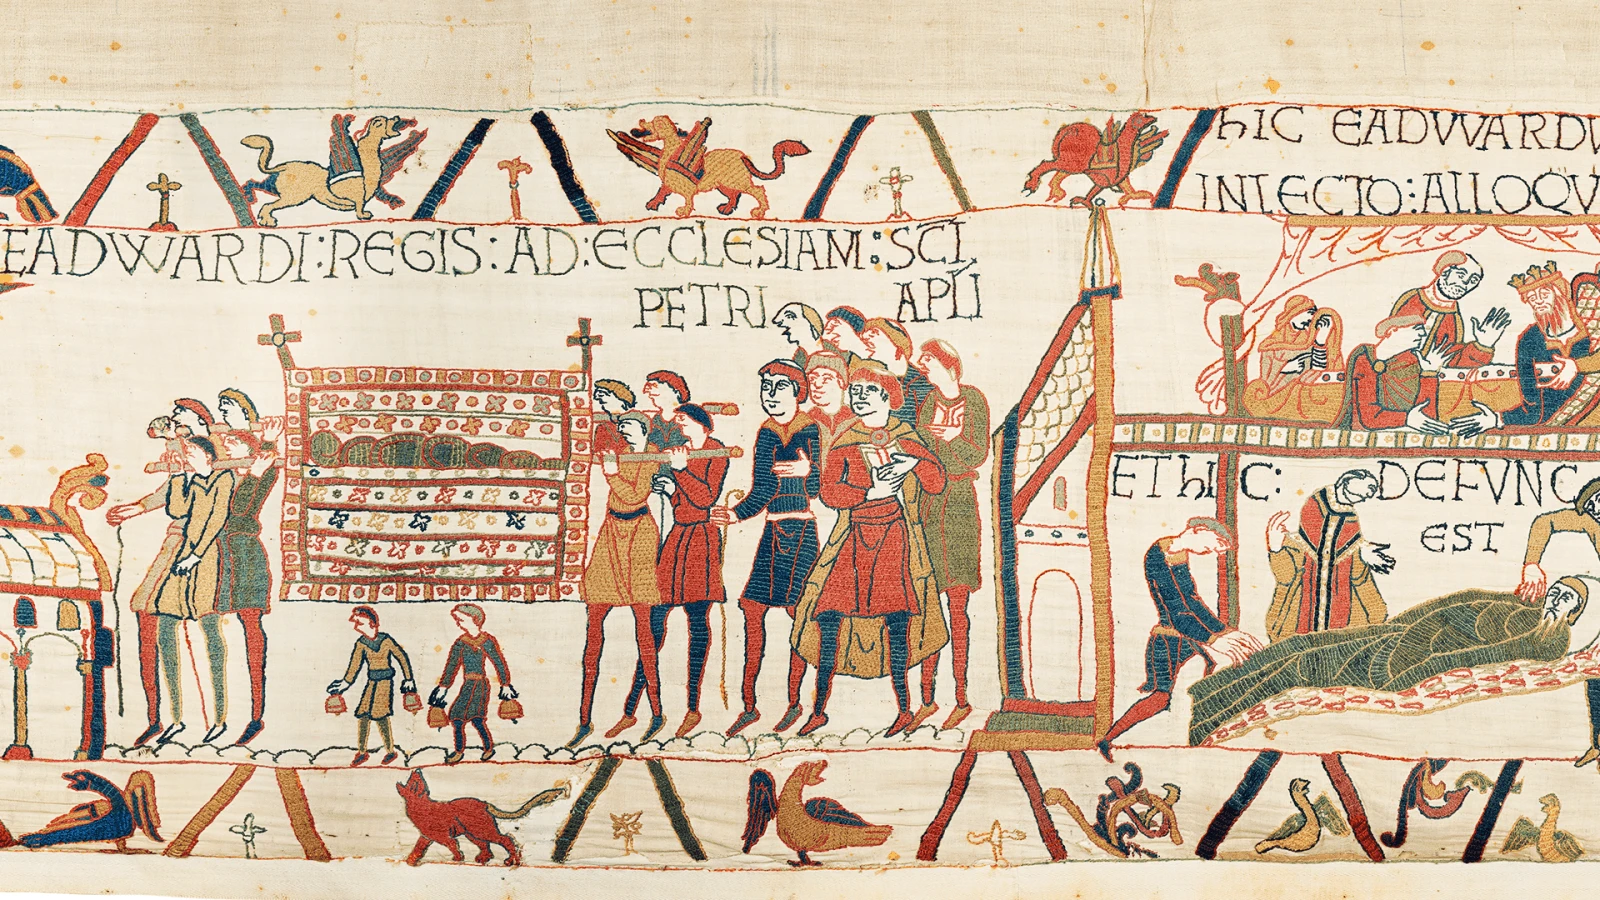 EADVVARDI : REGIS : AD : ECCLESIAM : SCI
PETRI APLI
hIC EADVVARDV
INLECTO : ALLOQV
ET hIC : DEFVNC
EST